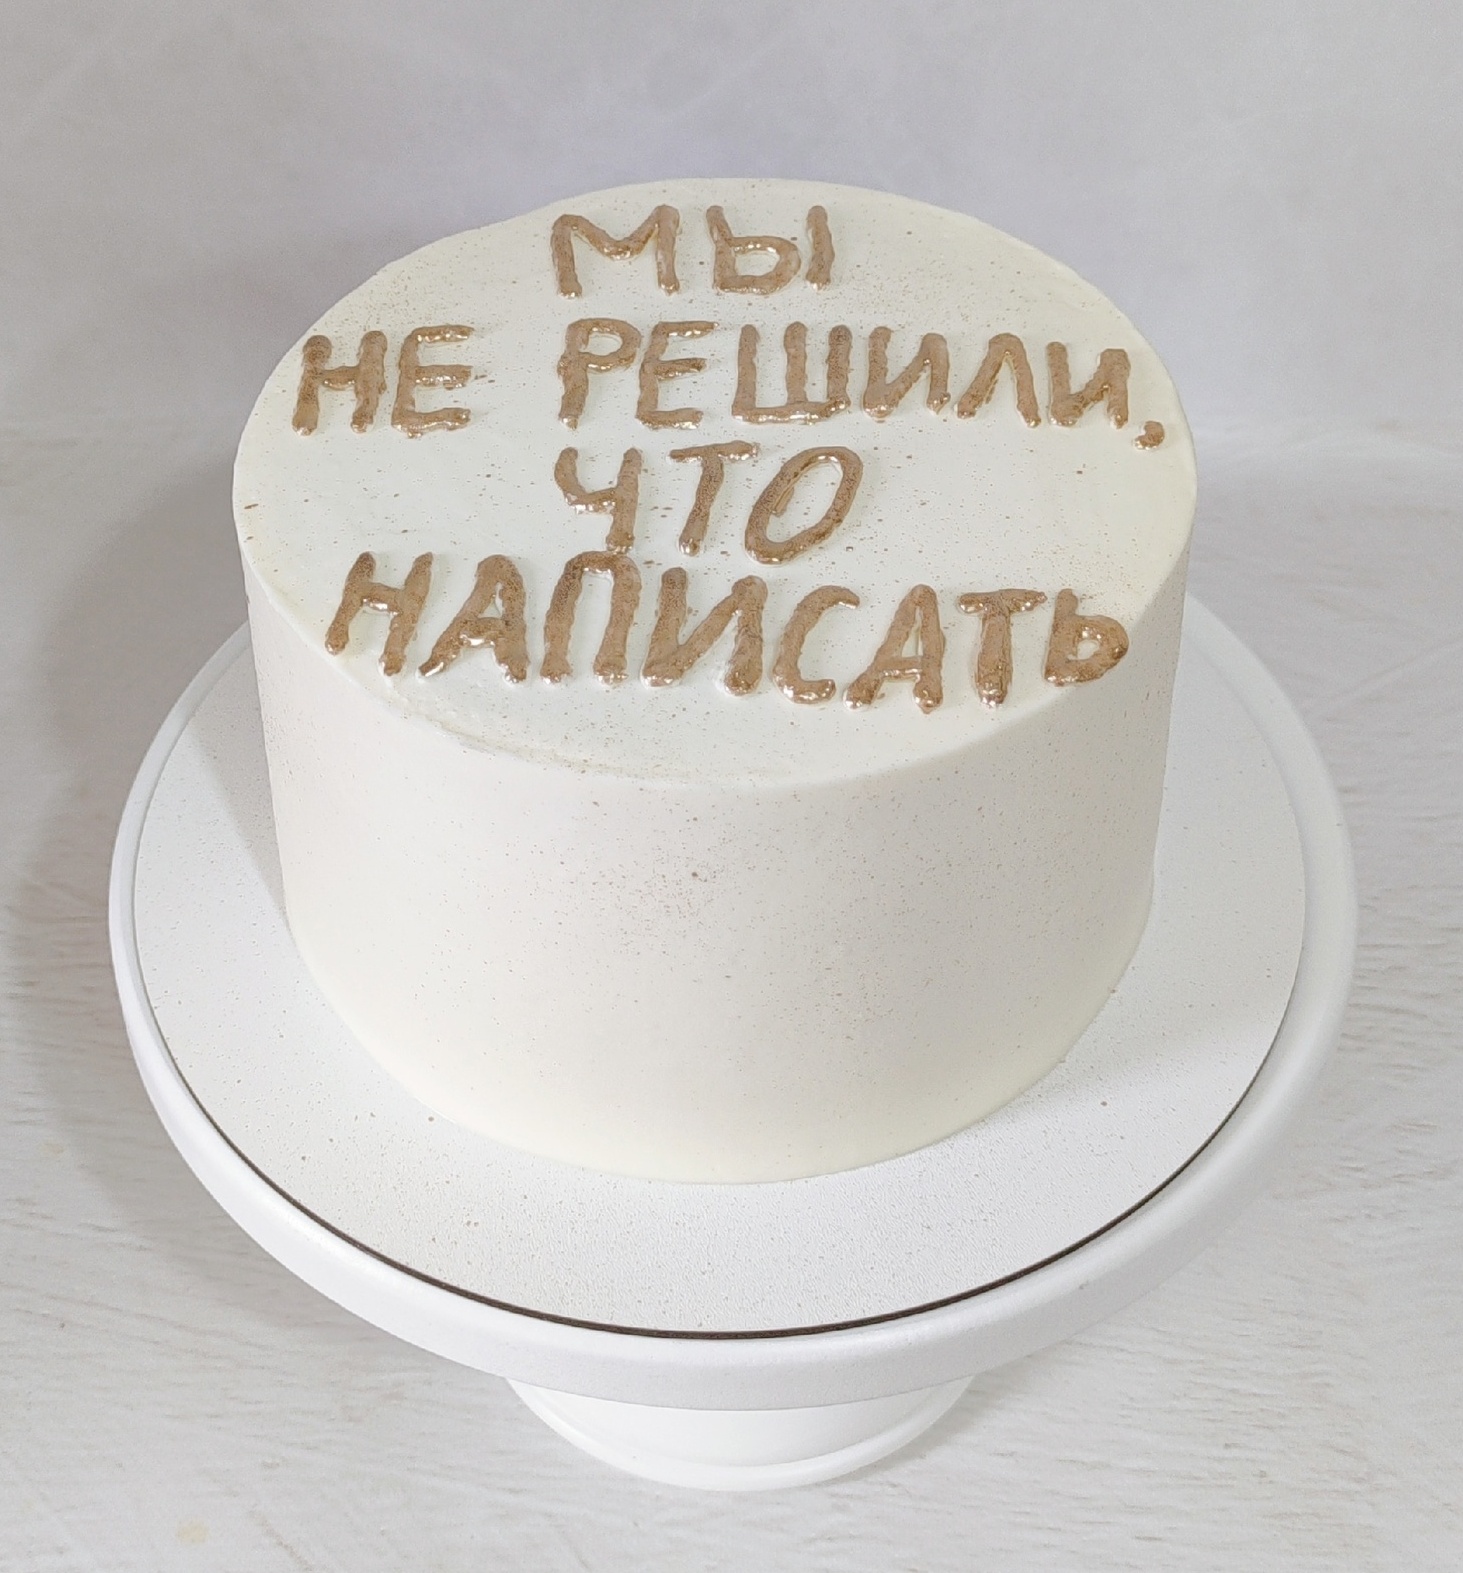 МЫ
НЕ РЕШИЛИ,
ЧТО
НАПИСАТЬ